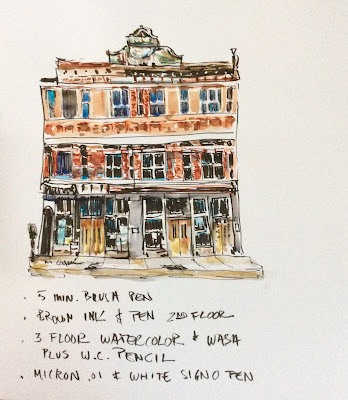 . 5 MIN. BRUSH PEN
. BROWN INK & PEN 2ND FLOOR
. 3 FLOOR WATERCOLOR & WASH
PLUS W.C. PENCIL
. MICRON .01 & WHITE SIGNO PEN